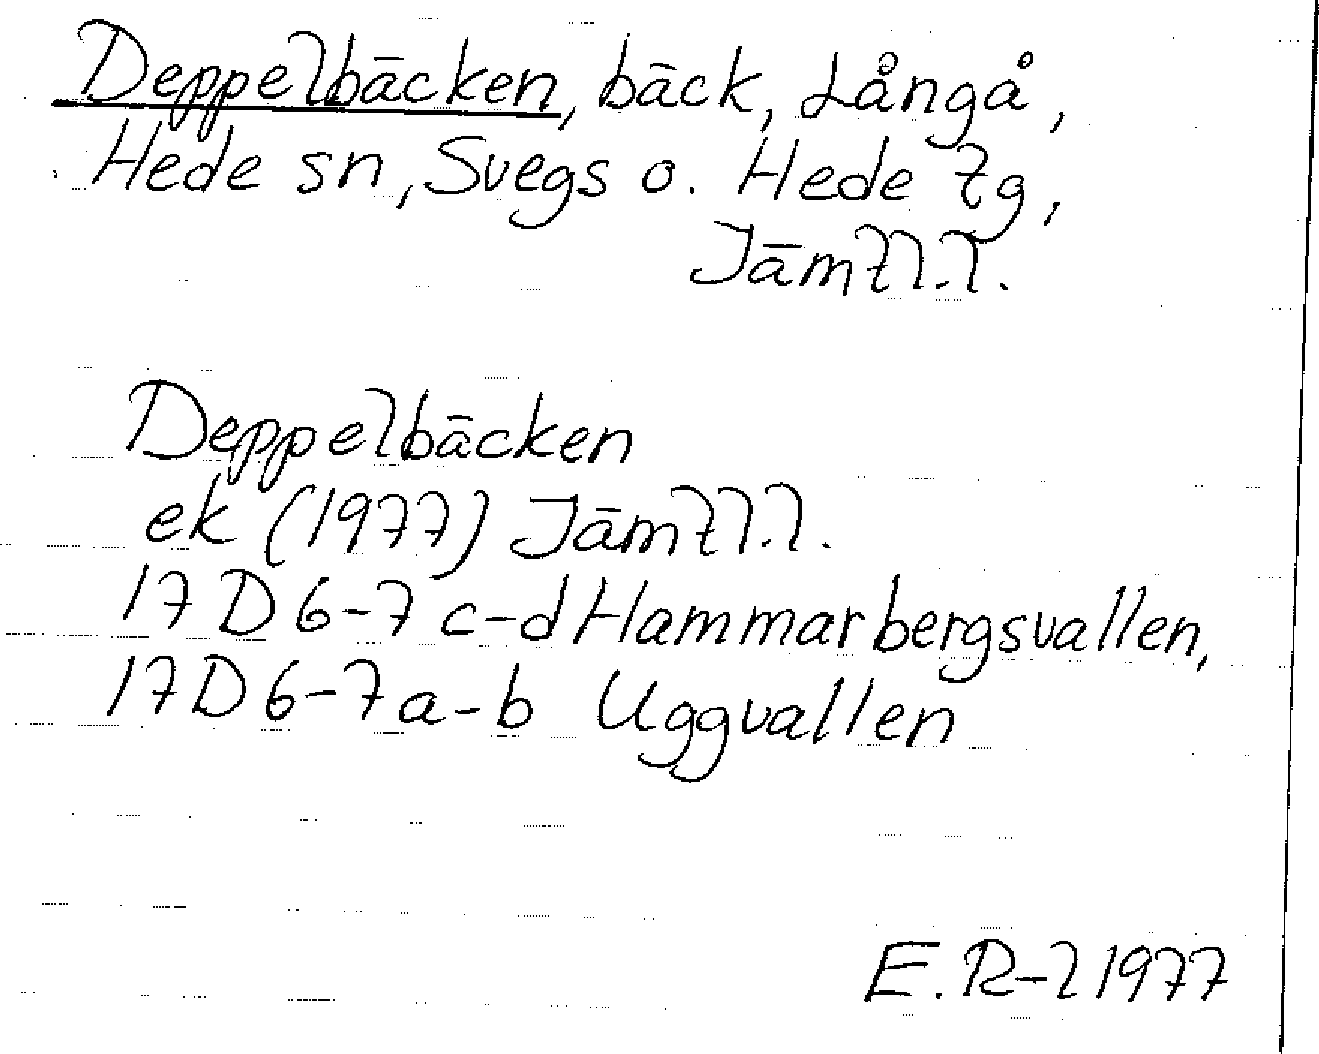 Deppelbäcken, bäck, Långå,
Hede sn, Svegs o. Hede tg,
Jämtl.l.
Deppelbäcken
ek (1977) Jämtl.l.
17 D 6-7 c-d Hammarbergsvallen,
17 D 6-7 a-b Uggvallen
E. R-l 1977